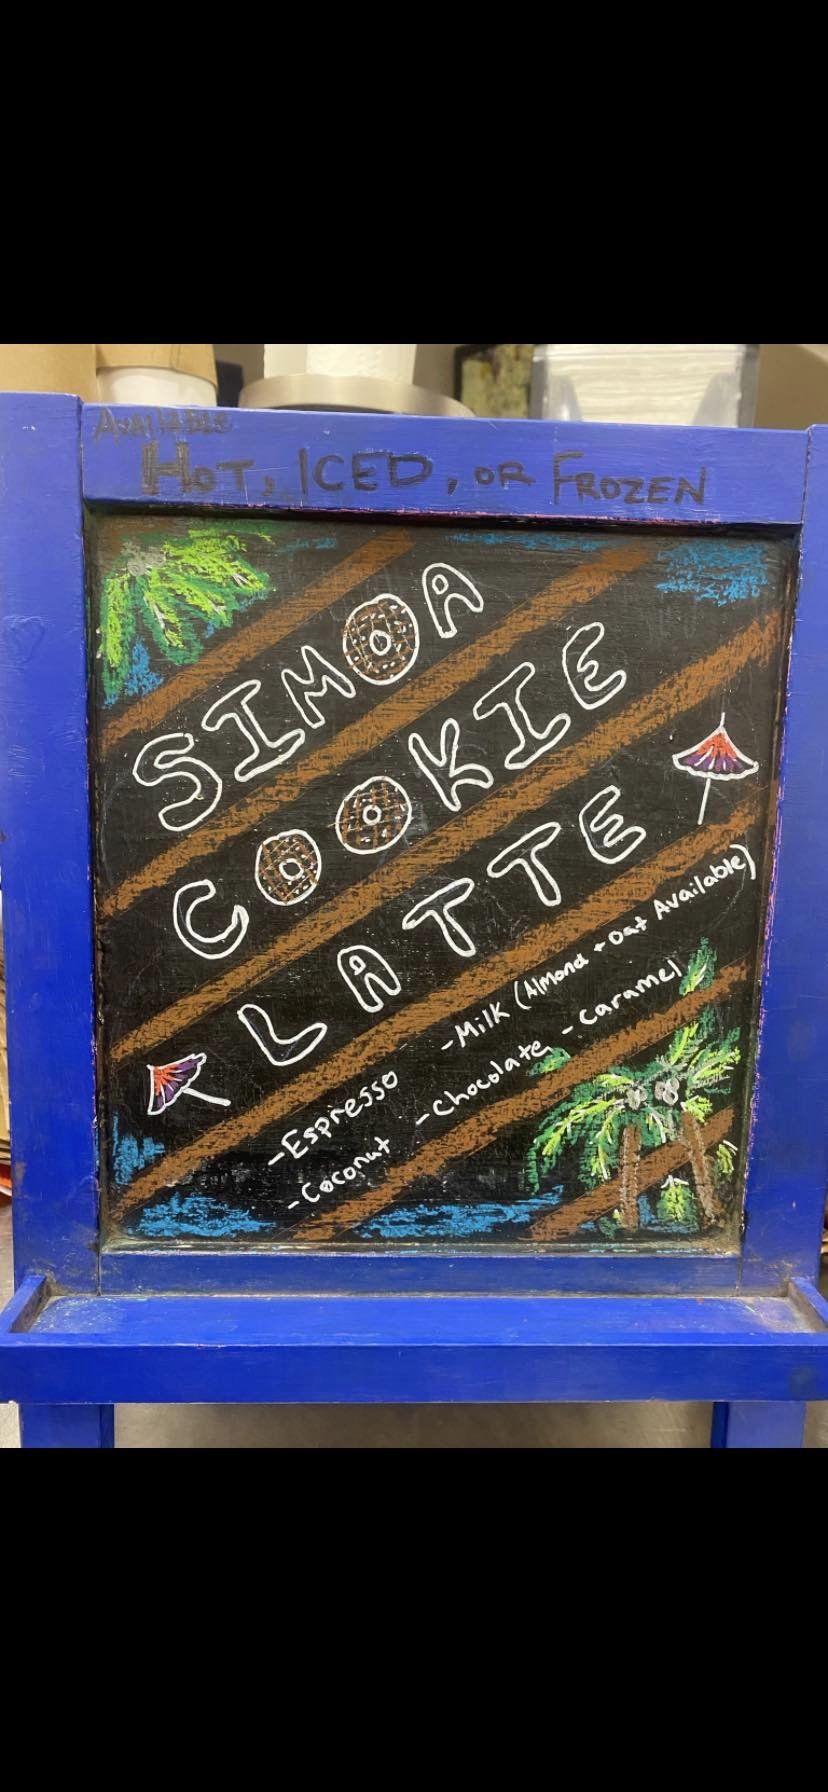 AVAILABLE
HOT, ICED, OR FROZEN
SIMOA
COOKIE
LATTE
-Espresso -Milk (Almond + Oat Available)
-Coconut -Chocolate -Caramel